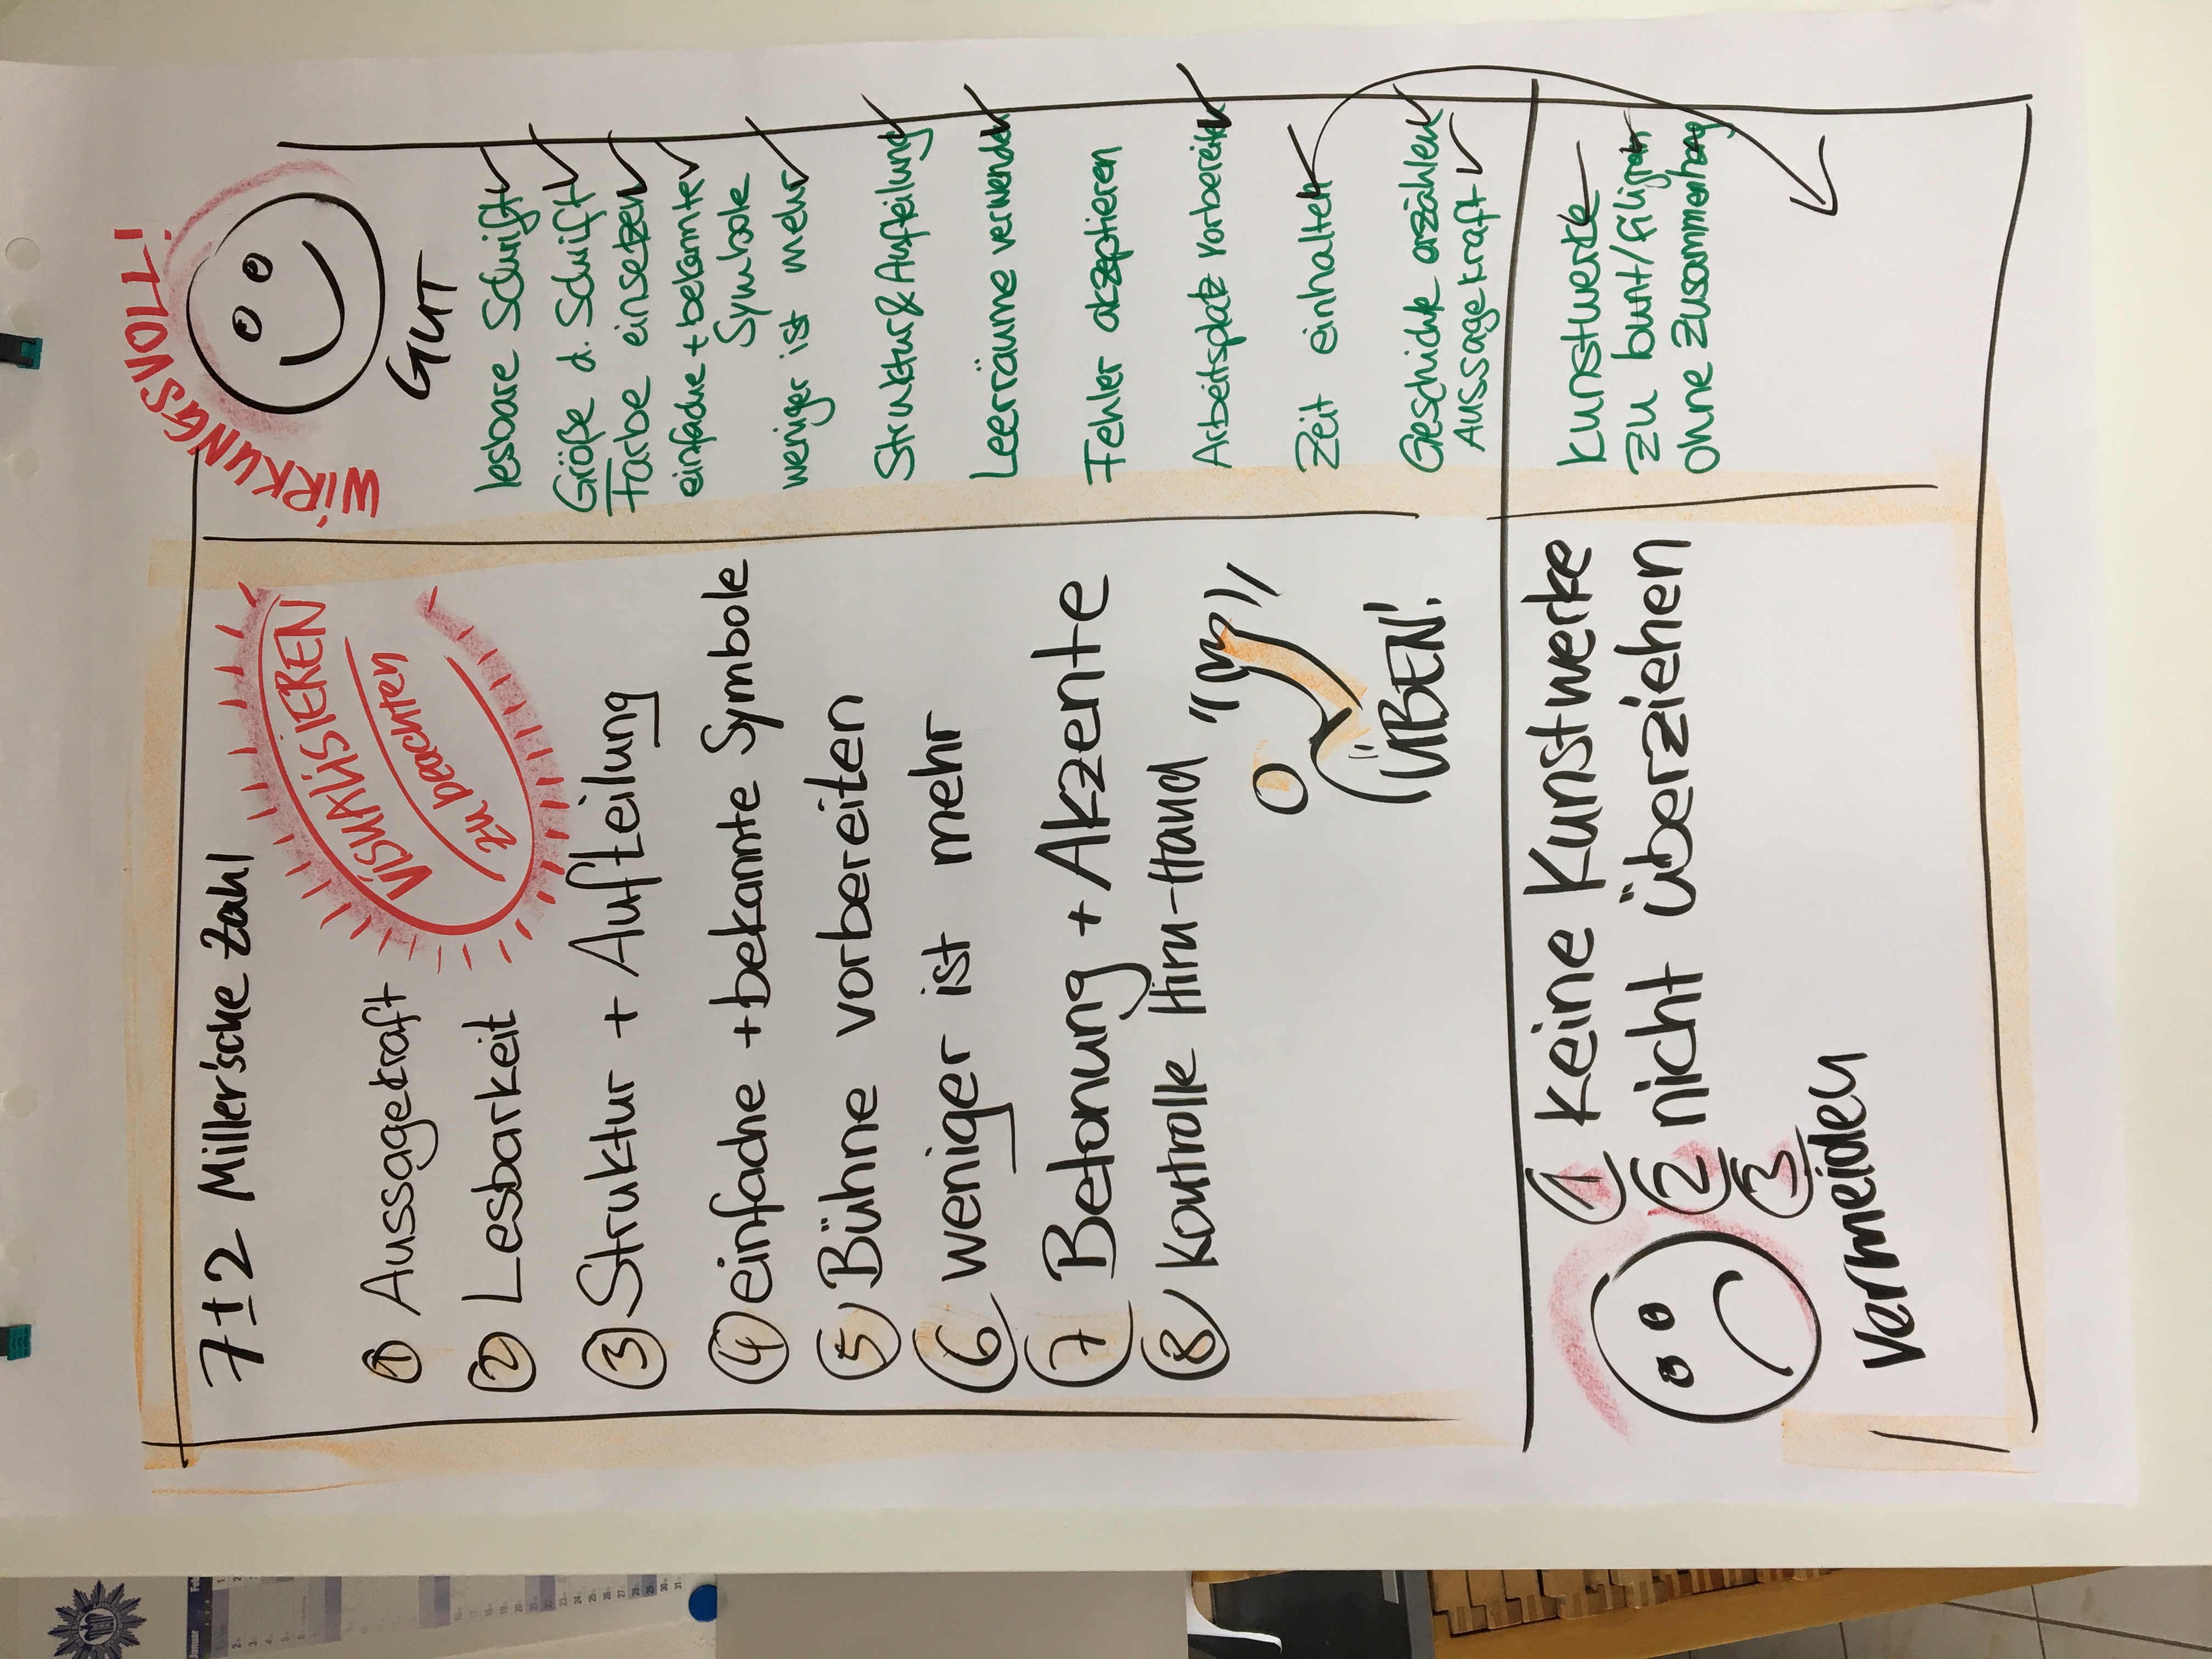 7±2 Miller'sche Zahl
VISUALISIEREN
zu beachten
① Aussagekraft
② Lesbarkeit
③ Struktur + Aufteilung
④ einfache + bekannte Symbole
⑤ Bühne vorbereiten
⑥ weniger ist mehr
⑦ Betonung + Akzente
⑧ Kontrolle Hirn-Hand
(ÜBEN!
WIRKUNGSVOLL!
GUT
lesbare Schrift
Größe d. Schrift
Farbe einsetzen
einfache + bekannte
Symbole
weniger ist mehr
Struktur & Aufteilung
Leerräume verwenden
Fehler akzeptieren
Arbeitsplatz vorbereiten
Zeit einhalten
Geschichte erzählen
Aussagekraft
① keine Kunstwerke
② nicht überziehen
③
Vermeiden
Kunstwerke
zu bunt/filigran
ohne Zusammenhang